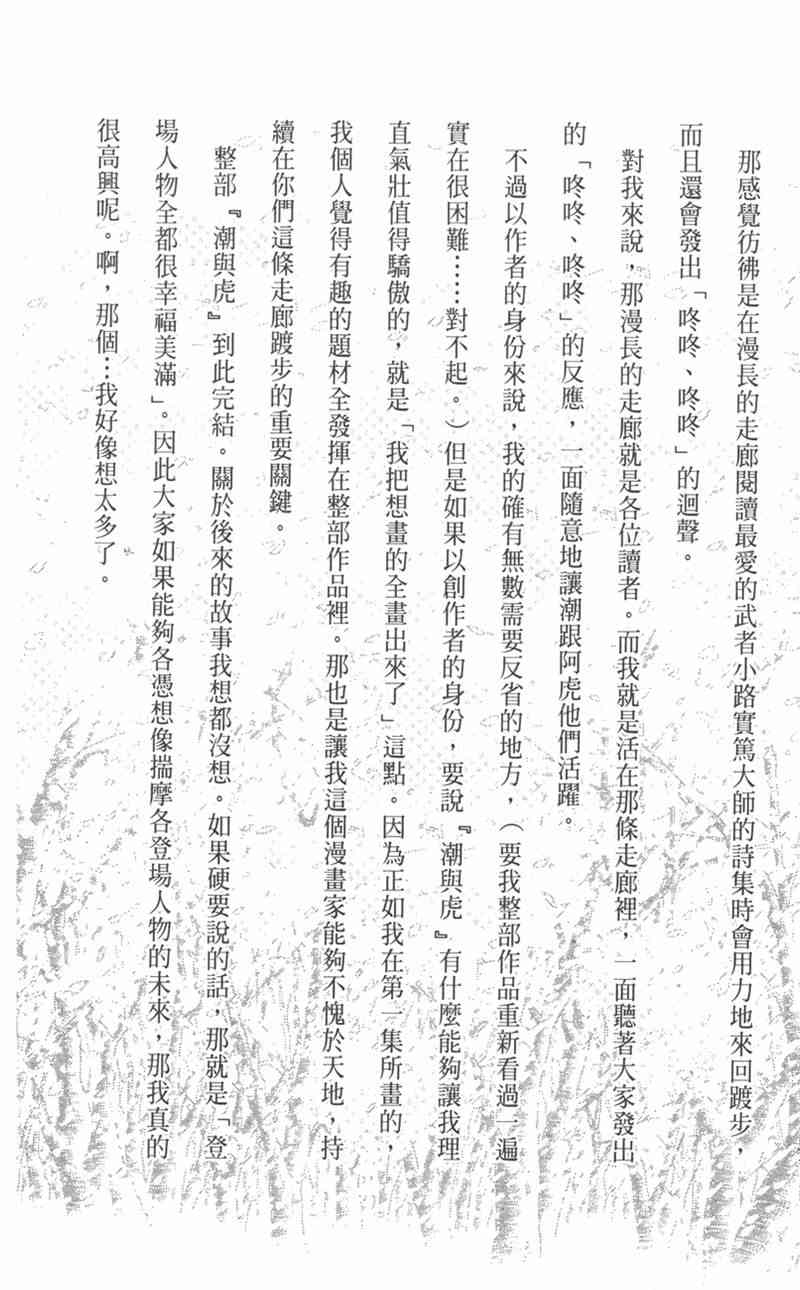 那感覺彷彿是在漫長的走廊閱讀最愛的武者小路實篤大師的詩集時會用力地來回踱步，
而且還會發出「咚咚、咚咚」的迴聲。
對我來說，那漫長的走廊就是各位讀者。而我就是活在那條走廊裡，一面聽著大家發出
的「咚咚、咚咚」的反應，一面隨意地讓潮跟阿虎他們活躍。
不過以作者的身份來說，我的確有無數需要反省的地方，（要我整部作品重新看過一遍
實在很困難……對不起。）但是如果以創作者的身份，要說『潮與虎』有什麼能夠讓我理
直氣壯值得驕傲的，就是「我把想畫的全畫出來了」這點。因為正如我在第一集所畫的，
我個人覺得有趣的題材全發揮在整部作品裡。那也是讓我這個漫畫家能夠不愧於天地，持
續在你們這條走廊踱步的重要關鍵。
整部『潮與虎』到此完結。關於後來的故事我想都沒想。如果硬要說的話，那就是「登
場人物全都很幸福美滿」。因此大家如果能夠各憑想像揣摩各登場人物的未來，那我真的
很高興呢。啊，那個…我好像想太多了。